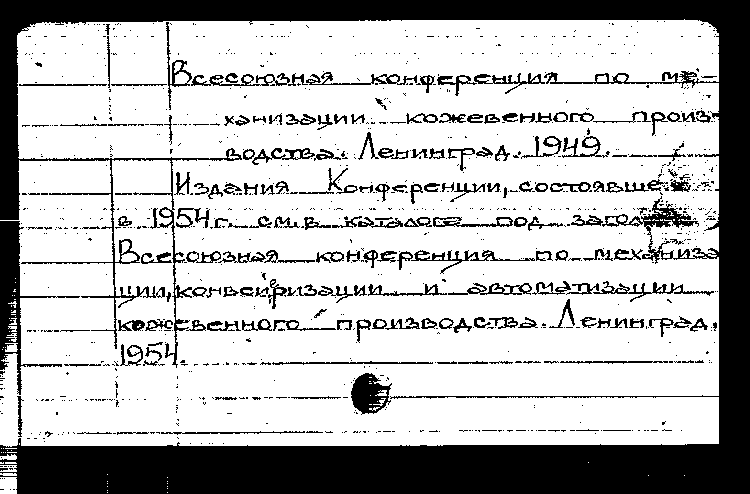 Всесоюзная конференция по ме-
ханизации кожевенного произ-
водства. Ленинград. 1949.
Издания Конференции, состоявше
в 1954 г. см. в каталоге под загол
Всесоюзная конференция по механиза
ции, конвейризации и автоматизации
кожевенного производства. Ленинград.
1954.